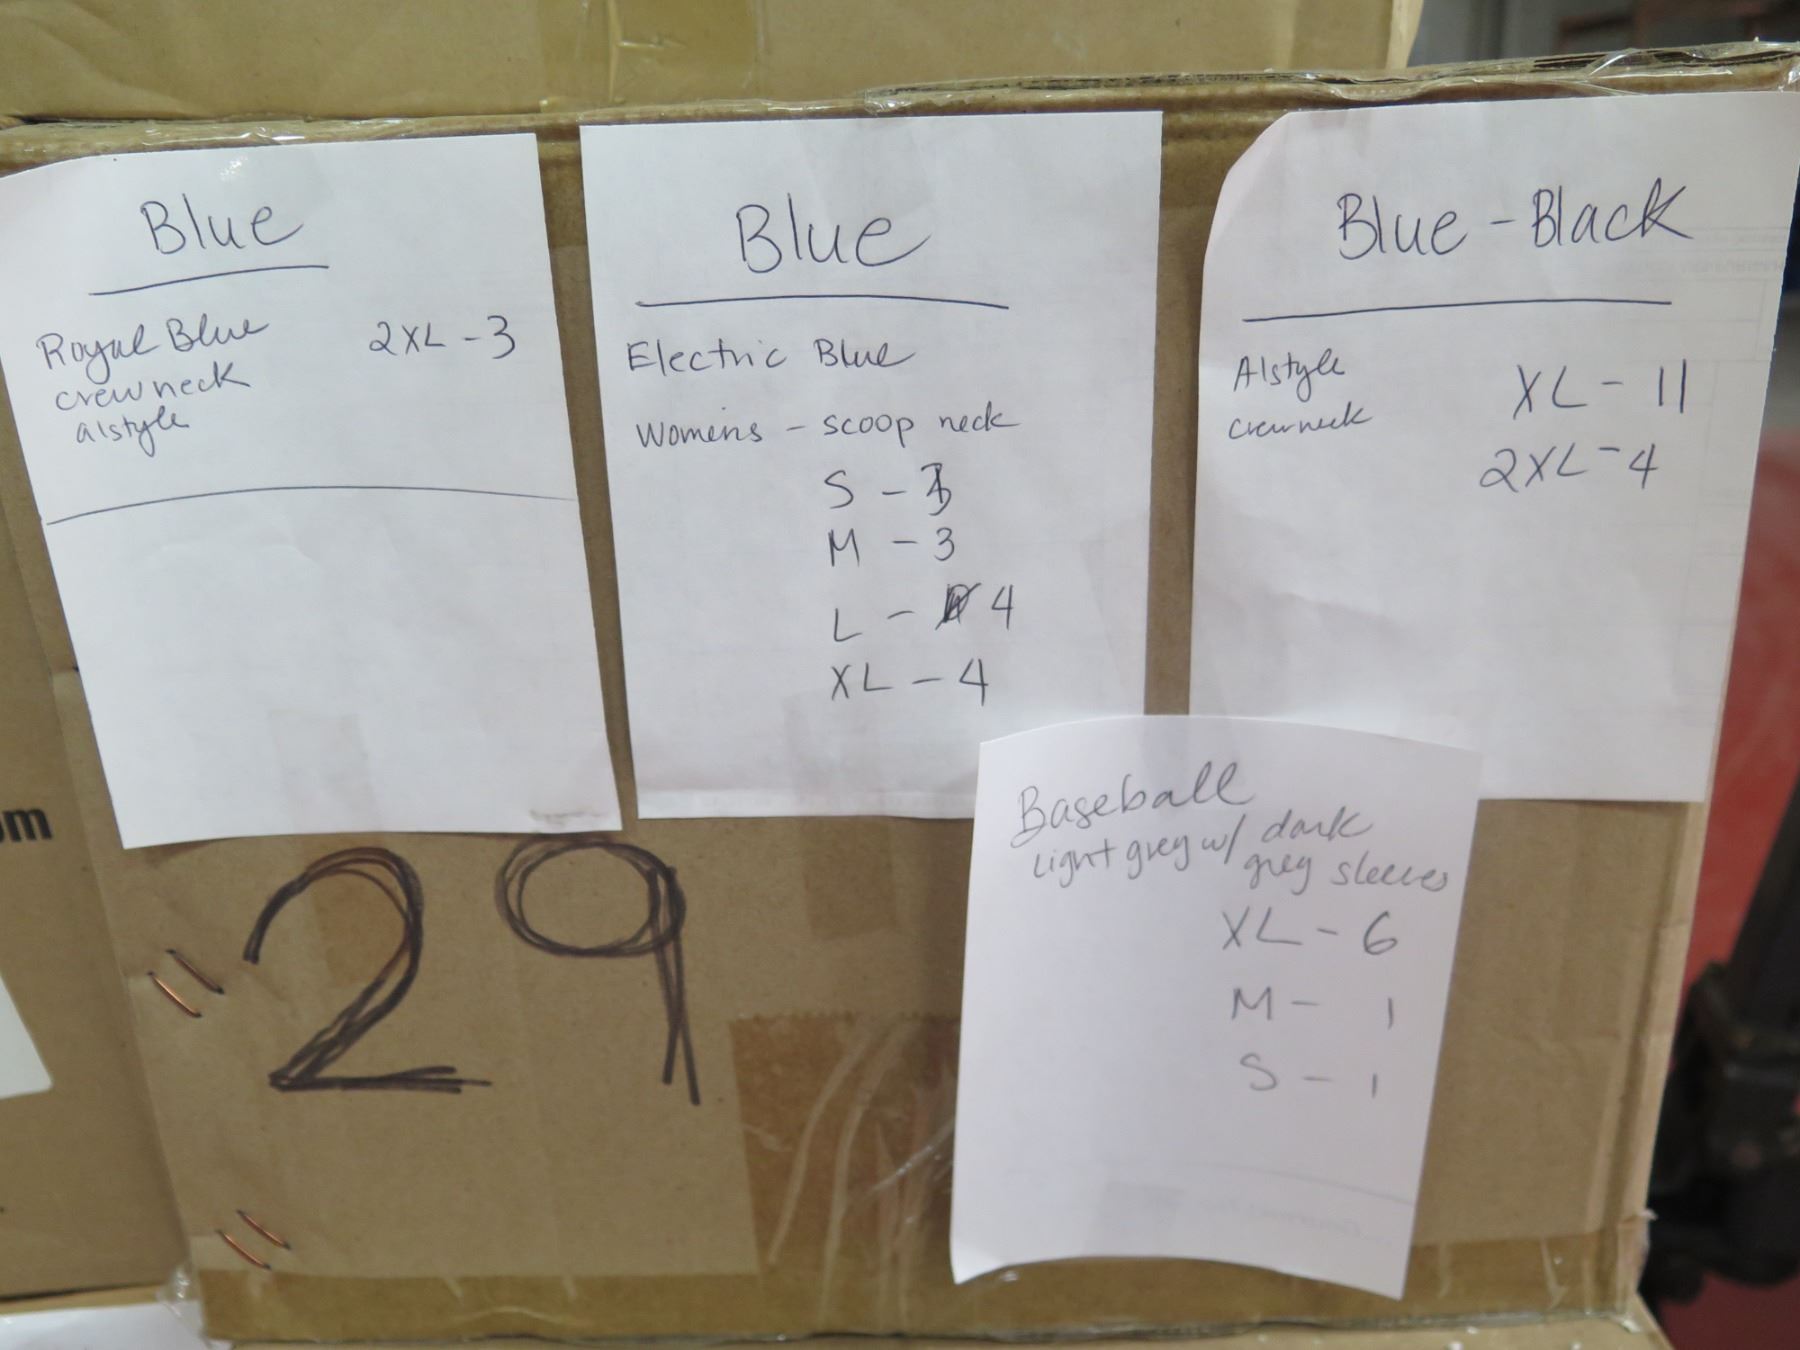 Blue
Royal Blue 2XL - 3
crewneck
alstyle
Blue
Electric Blue
Womens - scoop neck
S -
M - 3
L - 4
XL - 4
Blue - Black
Alstyle XL - 11
crewneck
2XL - 4
Baseball
Light grey w/ dark
grey sleeves
XL - 6
M - 1
S - 1
29
om